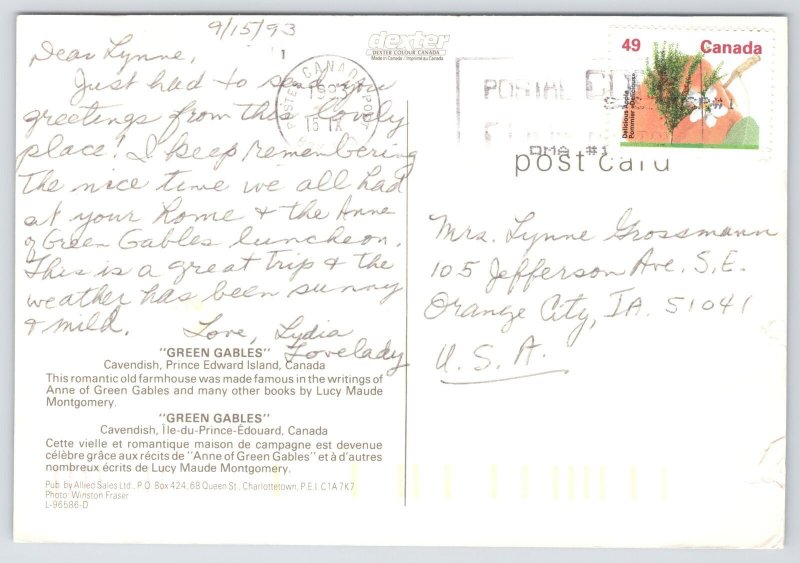 9/15/93
Dear Lynne,
Just had to send you
greetings from this lovely
place! I keep remembering
the nice time we all had
at your home & the Anne
of Green Gables luncheon.
This is a great trip & the
weather has been sunny
& mild.
Love, Lydia
Lovelady
"GREEN GABLES"
Cavendish, Prince Edward Island, Canada
This romantic old farmhouse was made famous in the writings of
Anne of Green Gables and many other books by Lucy Maude
Montgomery.
"GREEN GABLES"
Cavendish, Île-du-Prince-Édouard, Canada
Cette vielle et romantique maison de campagne est devenue
célèbre grâce aux récits de "Anne of Green Gables" et à d'autres
nombreux écrits de Lucy Maude Montgomery.
Pub. by Allied Sales Ltd., P.O. Box 424, 68 Queen St., Charlottetown, P.E.I. C1A 7K7
Photo: Winston Fraser
L-96586-D
dexter
DEXTER COLOUR CANADA
Made in Canada / Imprimé au Canada
1
CANADA
15 IX
POSTAL
#1
49 Canada
Delicious Apple
Pommier
post card
Mrs. Lynne Grossmann
105 Jefferson Ave. S.E.
Orange City, IA. 51041
U.S.A.